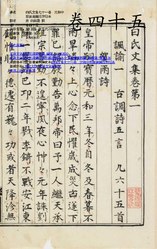 卷四十五
白氏文集卷第一
諷諭一 古調詩五言 凡六十五首
賀雨詩
皇帝嗣寶曆元和三年冬自冬及春暮不
雨旱爞爞上心念下民懼歲成災凶遂下
罪己詔殷勤告萬邦帝曰予一人繼天承
祖宗憂勤不遑寧夙夜心忡忡元年誅劉
闢一舉靖巴邛二年戮李錡不戰安江東
顧惟眇眇德遽有巍巍功或者天降沴無